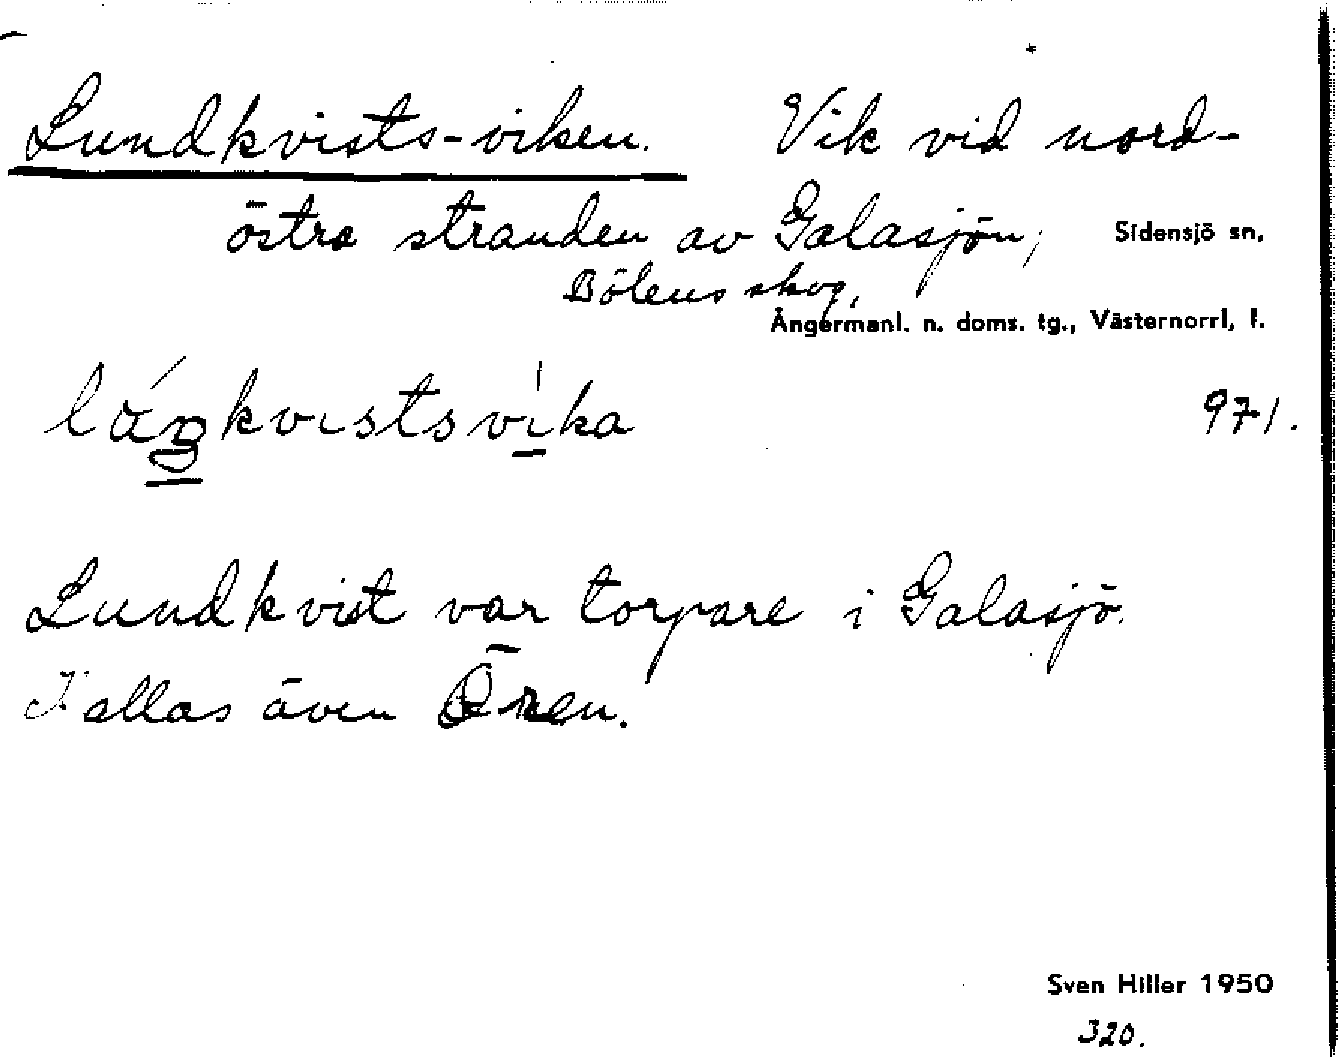 Lundkvists-viken. Vik vid nord-
östra stranden av Galasjön, Sidensjö sn,
Bölens skog,
Ångermanl. n. doms. tg., Västernorrl, l.
971.
Lundkvist var torpare i Galasjö.
Kallas även Ören.
Sven Hiller 1950
320.